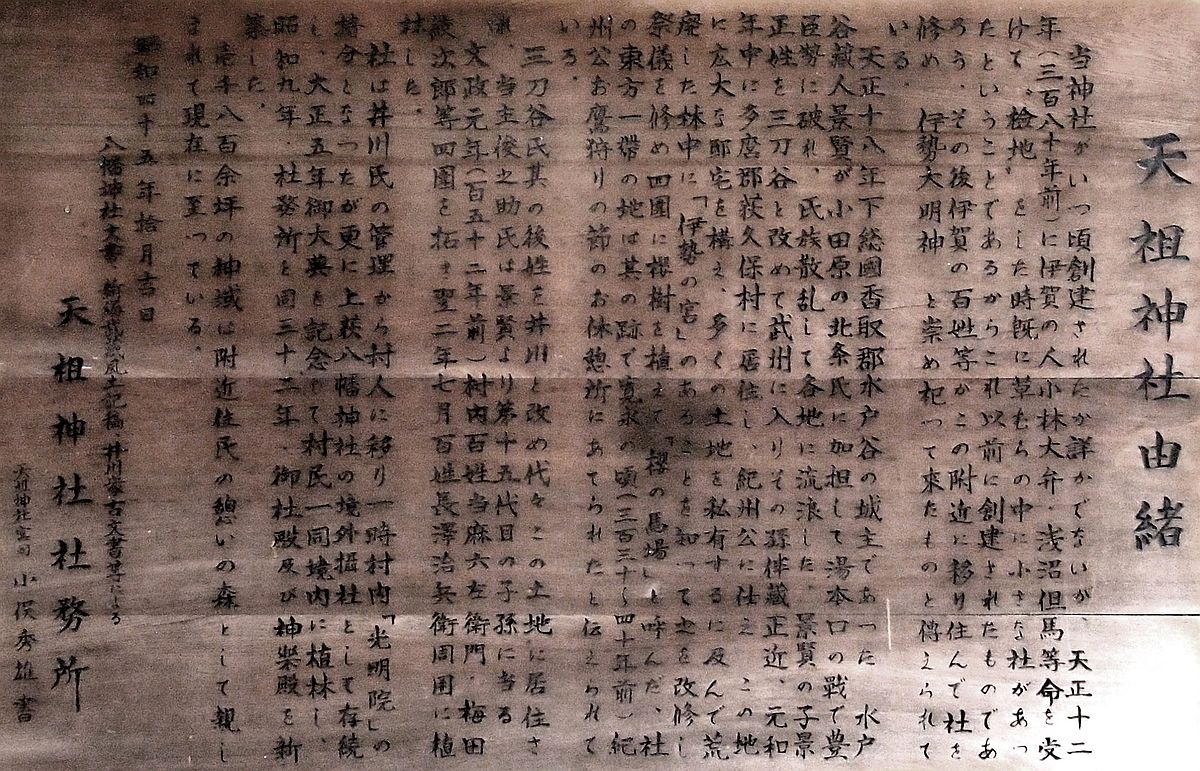 天祖神社由緒
当神社がいつ頃創建されたか詳かでないが、天正十二
年(三百八十年前)に伊賀の人小林大弁・浅沼但馬等命を受
けて、検地、をした時既に草むらの中に小さな社があっ
たということであるからこれ以前に創建されたものであ
ろう、その後伊賀の百姓等がこの附近に移り住んで社を
修め、伊勢大明神、と崇め祀って来たものと傳えられて
いる。
天正十八年下総國香取郡水戸谷の城主であった、水戸
谷蔵人景賢が小田原の北条氏に加担して湯本口の戦で豊
臣勢に破れ、氏族散乱して各地に流浪した、景賢の子景
正姓を三刀谷と改めて武州に入りその孫伴蔵正近、元和
年中に多麿郡荻久保村に居住し、紀州公に仕え、この地
に広大な邸宅を構え、多くの土地を私有するに及んで荒
廃した林中に「伊勢の宮」のあることを知って之を改修し
祭儀を修め四囲に櫻樹を植えて「櫻の馬場」と呼んだ、社
の東方一帯の地は其の跡で寛永の頃(三百三十〜四十年前)紀
州公お鷹狩りの節のお休憩所にあてられたと伝えられて
いる。
三刀谷氏其の後姓を井川と改め代々この土地に居住さ
れ、当主後之助氏は景賢より第十五代目の子孫に当る
文政元年(百五十二年前)村内百姓当麻六左衛門、梅田
機次郎等四囲を拓き翌二年七月百姓長澤治兵衛周囲に植
林した。
社は井川氏の管理から村人に移り一時村内「光明院」の
持分となったが更に上荻八幡神社の境外摂社として存続
し、大正五年御大典を記念して村民一同境内に植林し、
昭和九年、社務所を同三十二年、御社殿及び神楽殿を新
築した。
壱千八百余坪の神域は附近住民の憩いの森として親し
まれて現在に至っている。
昭和四十五年拾月吉日
八幡神社文書、新編武蔵風土記稿、井川家古文書等による
天祖神社社務所
天祖神社宮司 小俣秀雄 書